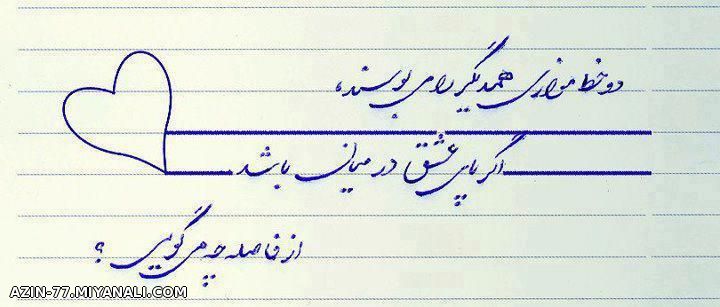 دو خط موازی همدیگر را می بوسند،
اگر پای عشق در میان باشد
از فاصله چه می گویی ؟
AZIN-77.MIYANALI.COM